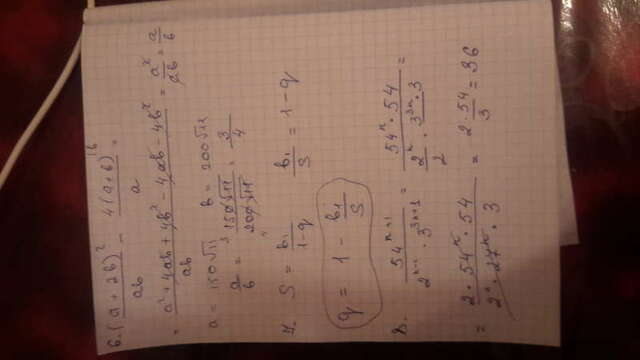 6. (a + 2b)² / ab − 4(a+b)^{1b} / a =
= a² + 4ab + 4b² − 4ab − 4b² / ab = a² / ab = a / b
a = 150√11 b = 200√11
a / b = 150√11 / 200√11 = 3 / 4
7. S = b₁ / 1−q b₁ / S = 1 − q
q = 1 − b₁ / S
8. 54^{n+1} / 2^{n−1} · 3^{3n+1} = 54ⁿ · 54 / 2ⁿ / 2 · 3^{3n} · 3 =
= 2 · 54ⁿ · 54 / 2ⁿ · 27ⁿ · 3 = 2 · 54 / 3 = 36